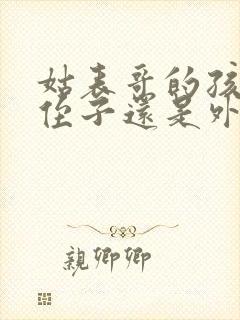 姑表哥的孩
侄子還是外
親卿卿